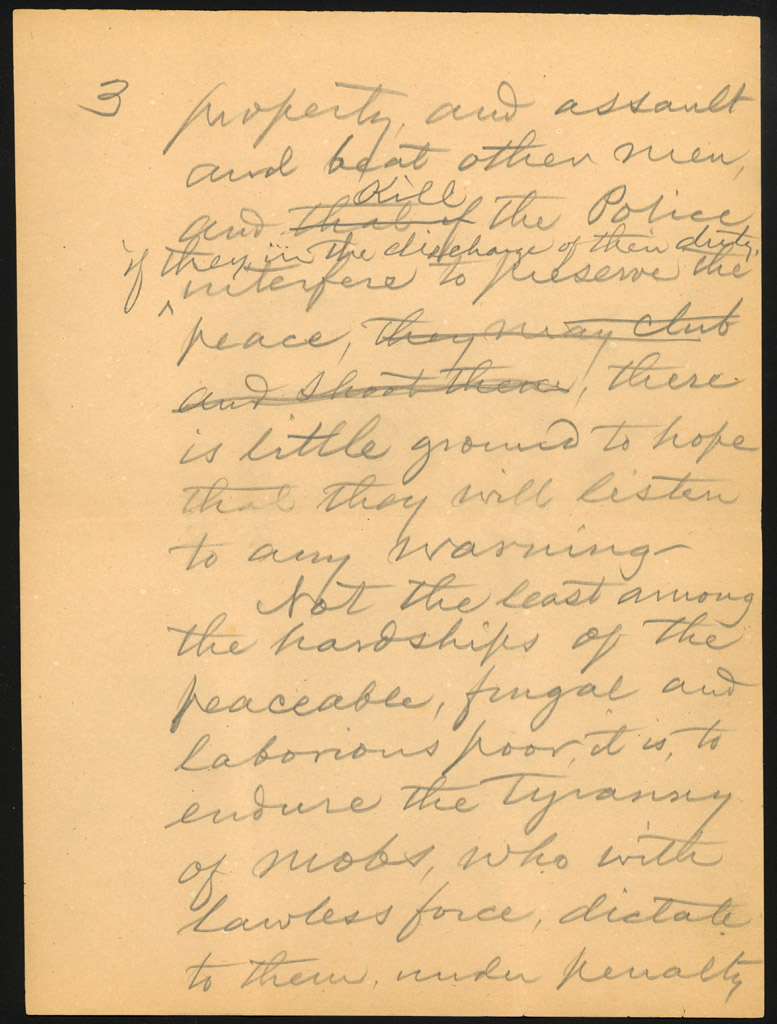 3
property, and assault
and beat other men,
Kill
and that if the Police
if they, in the discharge of their duty,
interfere to preserve the
peace, they may club
and shoot them, there
is little ground to hope
that they will listen
to any warning—
Not the least among
the hardships of the
peaceable, frugal and
laborious poor, it is, to
endure the tyranny
of mobs, who with
lawless force, dictate
to them, under penalty